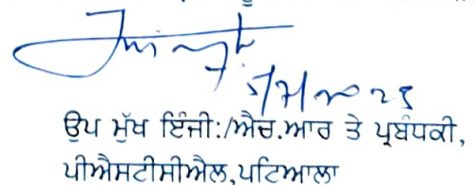 5/7/2025
ਉਪ ਮੁੱਖ ਇੰਜੀ:/ਐਚ.ਆਰ ਤੇ ਪ੍ਰਬੰਧਕੀ,
ਪੀਐਸਟੀਸੀਐਲ,ਪਟਿਆਲਾ